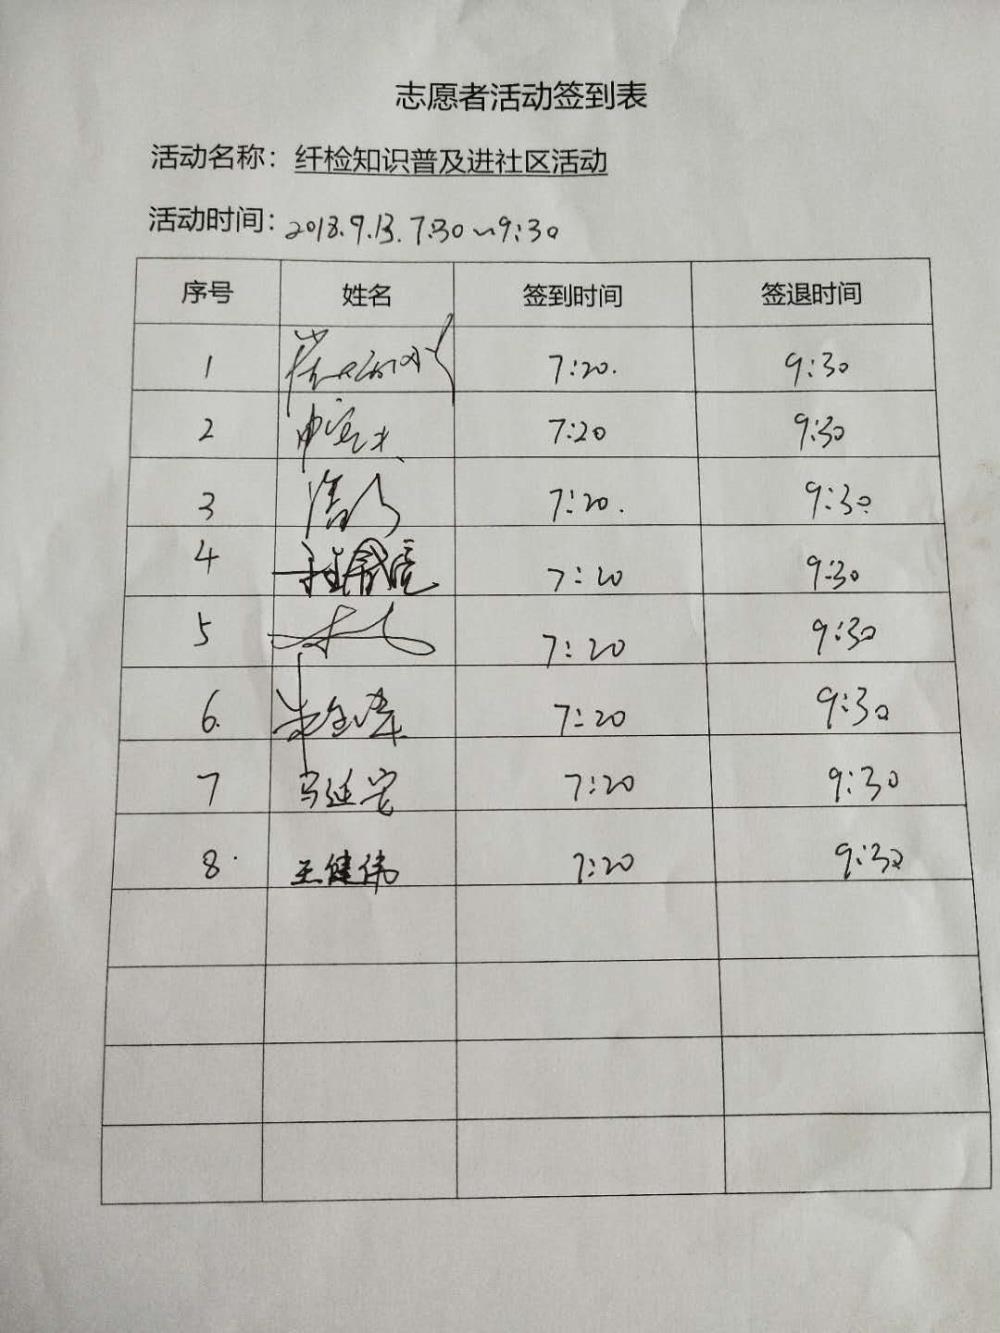 志愿者活动签到表
活动名称：纤检知识普及进社区活动
活动时间：2018.9.13.7:30～9:30
序号 姓名 签到时间 签退时间
1 7:20. 9:30
2 7:20 9:30
3 7:20. 9:30
4 7:20 9:30
5 7:20 9:30
6. 7:20 9:30
7 马延安 7:20 9:30
8. 王健伟 7:20 9:30